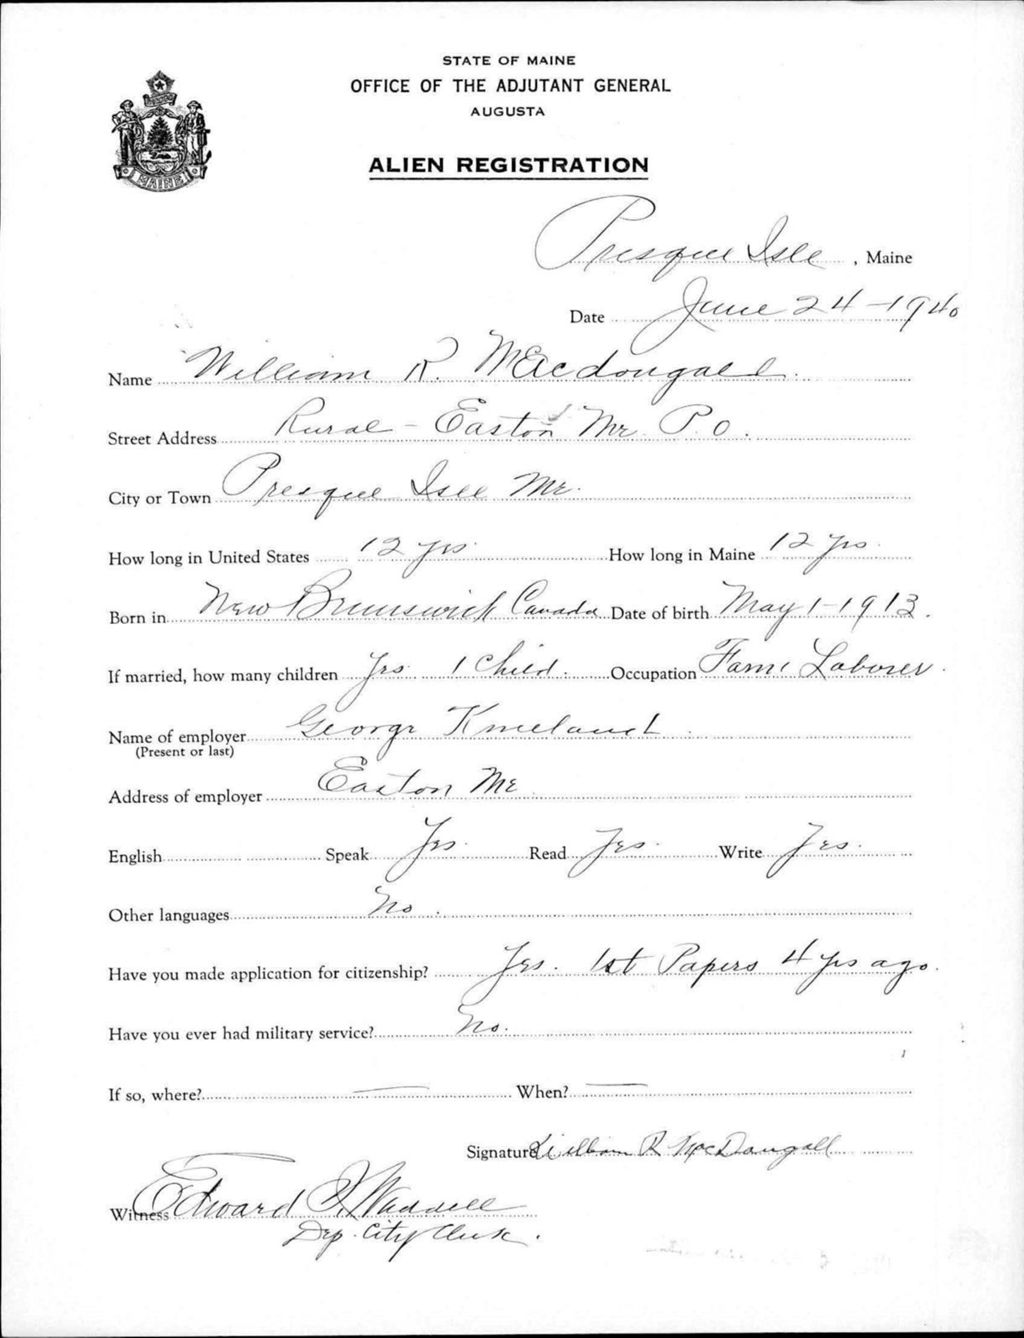 STATE OF MAINE
OFFICE OF THE ADJUTANT GENERAL
AUGUSTA
ALIEN REGISTRATION
MAINE
Presque Isle, Maine
Date June 24-1940
Name William R. MacDougall
Street Address Rural - Easton Me P.O.
City or Town Presque Isle Me.
How long in United States 12 yrs. How long in Maine 12 yrs.
Born in New Brunswick Canada Date of birth May 1-1913.
If married, how many children Yes. 1 Child. Occupation Farm Laborer.
Name of employer George
(Present or last)
Address of employer Easton Me
English Speak Yes. Read Yes. Write Yes.
Other languages No.
Have you made application for citizenship? Yes. 1st Papers 4 yrs ago.
Have you ever had military service? No.
If so, where? — When? —
Signature William R McDougall
Witness Edward Waddell
Dep. City Clerk.